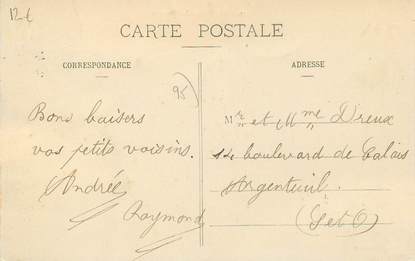 12 €
CARTE POSTALE
CORRESPONDANCE
ADRESSE
95
Bons baisers
vos petits voisins.
Andrée
Raymond
Mr et Mme Dreux
boulevard de Calais
Argenteuil.
(S et O)